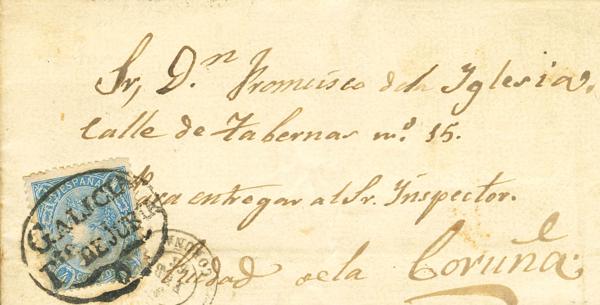 Sr, D.n Francisco de la Iglesia.
Calle de Tabernas n.º 15.
para entregar al Sr. Inspector.
Ciudad de la Coruña.
ESPAÑA
GALICIA
DE
CORUÑA